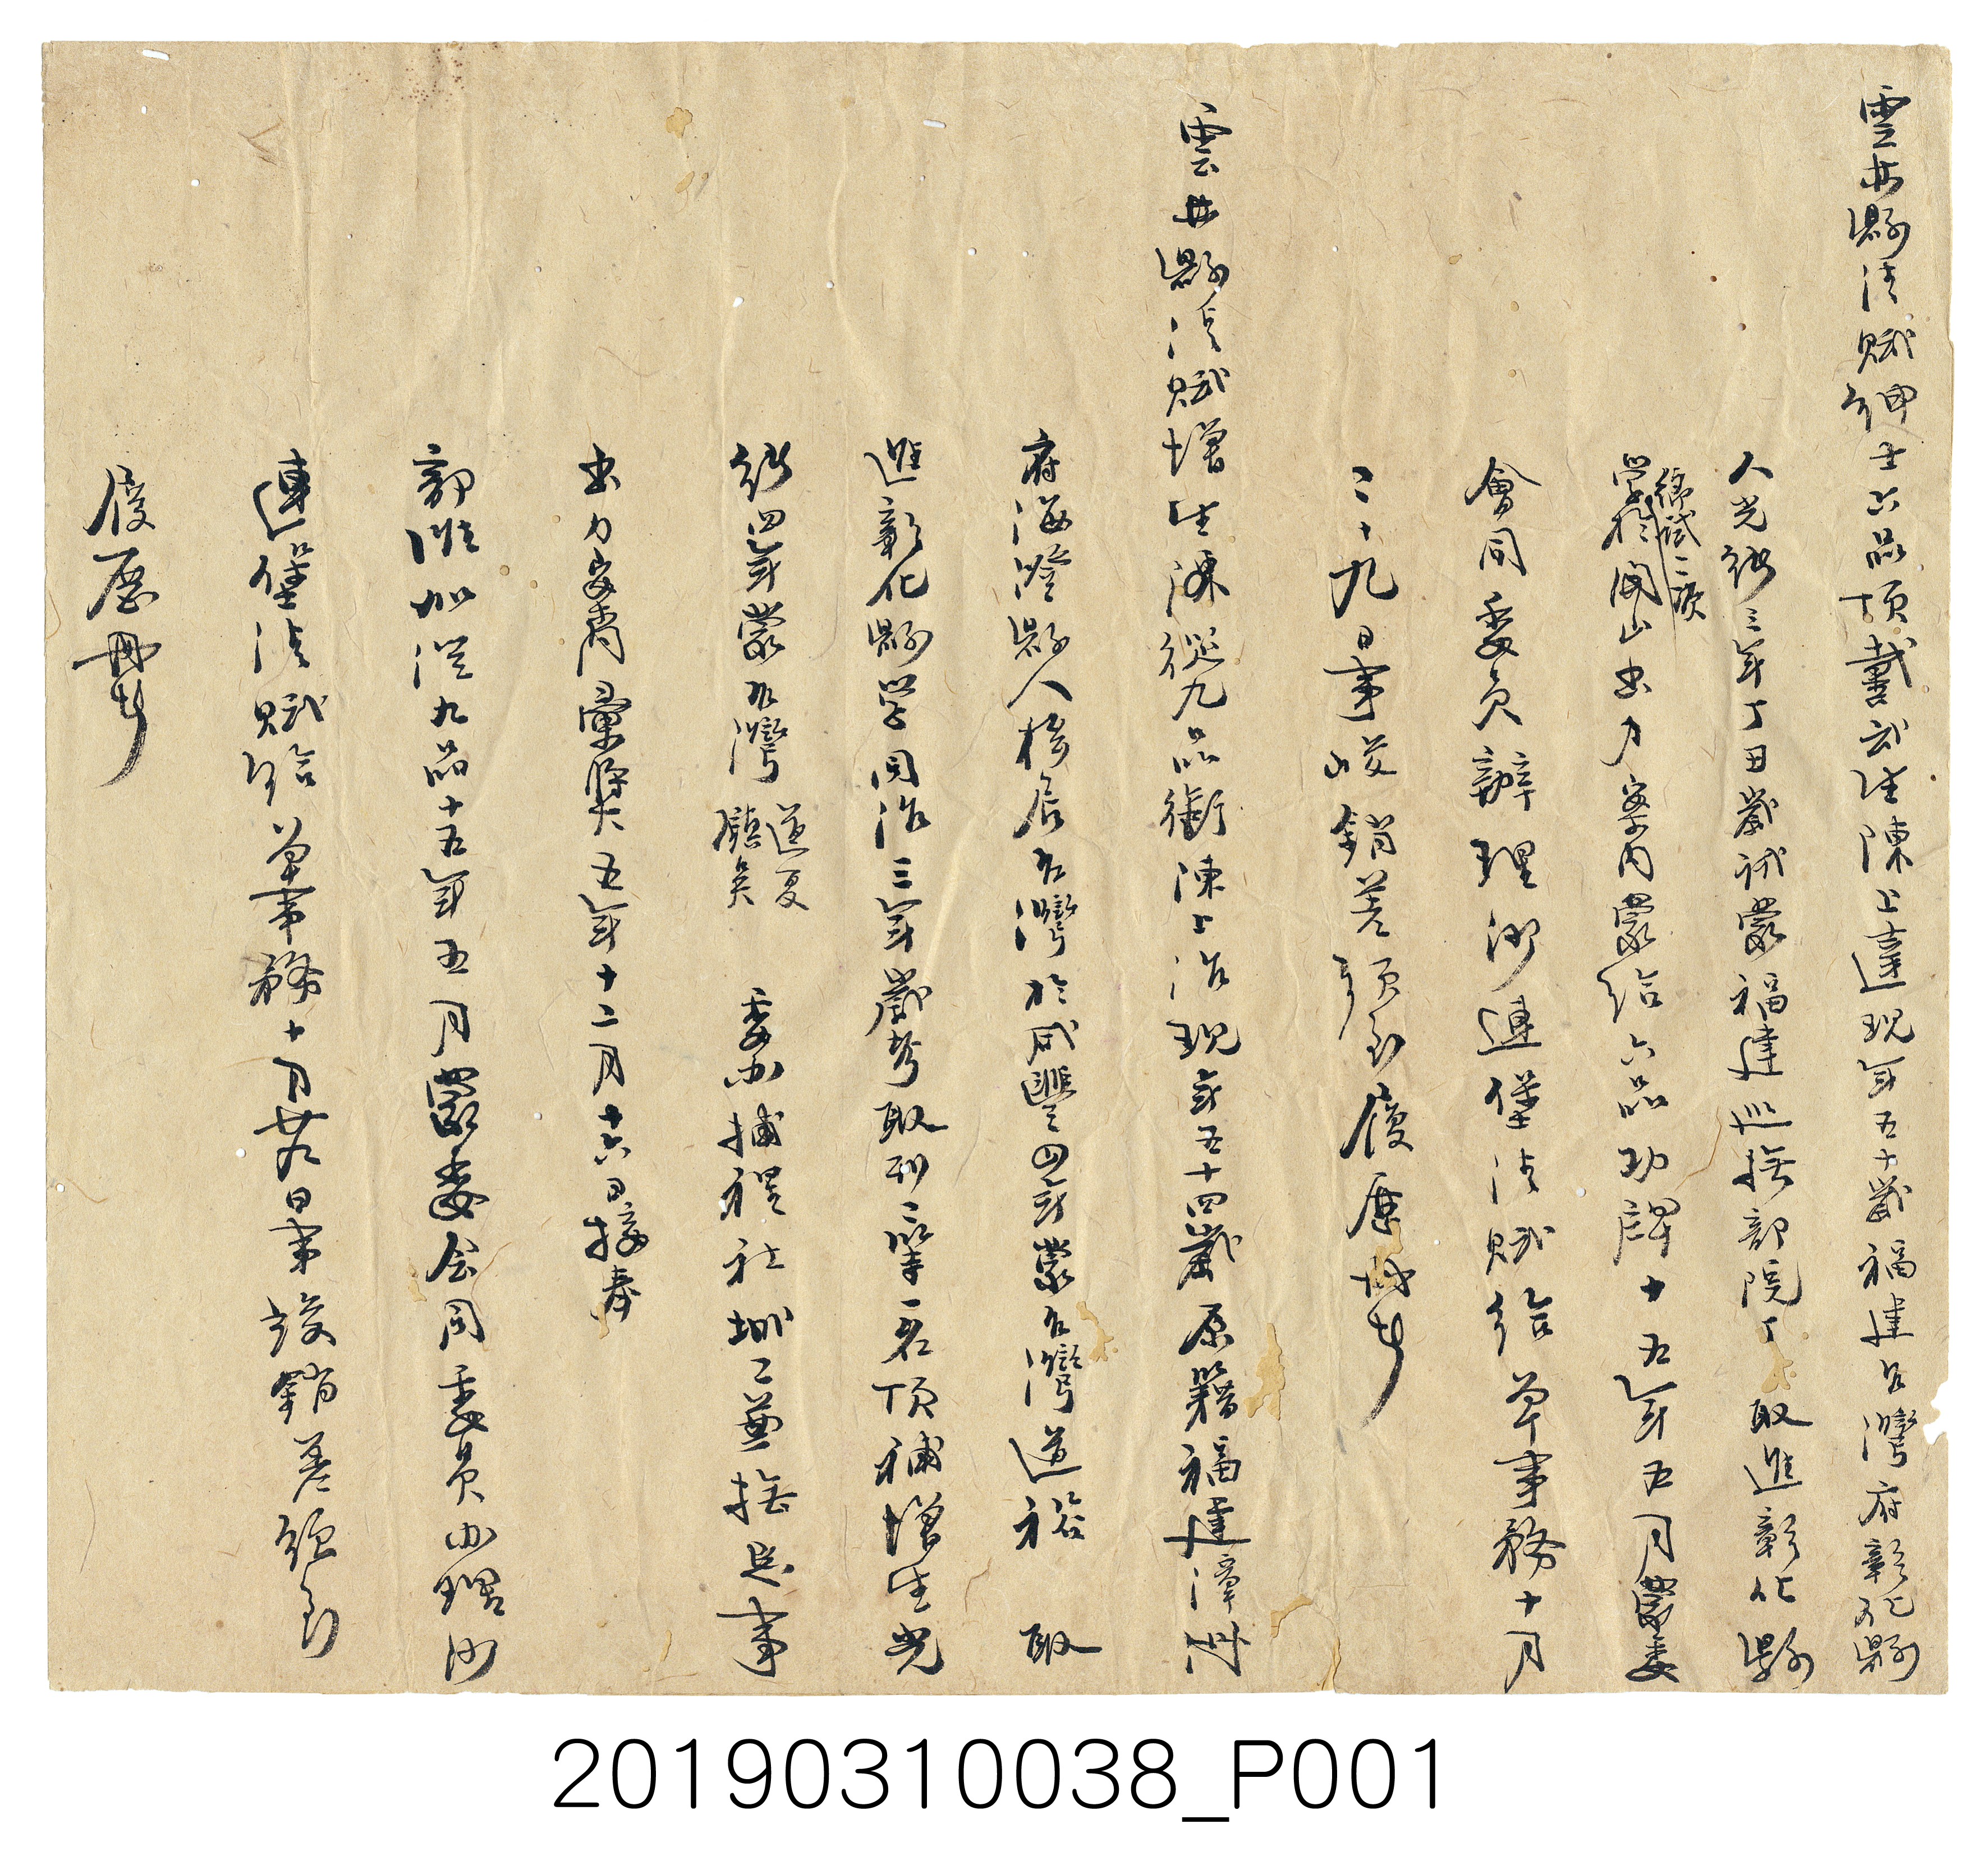 雲林縣清賦紳士六品頂戴武生陳上達現年五十歲福建台灣府彰化縣
人光緒三年丁丑歲試蒙福建巡撫部院丁取進彰化縣
學於開山出力案內蒙給六品功牌十五年五月蒙委
鄉試二次
會同委員辦理沙連堡清賦給单事務十月
二十九日事竣銷差須至履歷冊者
雲林縣清賦增生陳從九品銜陳上治現年五十四歲原籍福建漳州
府海澄縣人移居台灣於咸豐四年蒙台灣道裕 取
進彰化縣学同治三年歲考取列一等一名頂補增生光
緒四年蒙台灣道夏鎮吳 委办埔裡社圳工兼撫墾事
出力案內彙獎五年十二月十六日接奉
部准加從九品十五年五月蒙委会同委員办理沙
連堡清賦給单事務十月廿九日事竣銷差須至
履歷冊者
20190310038_P001